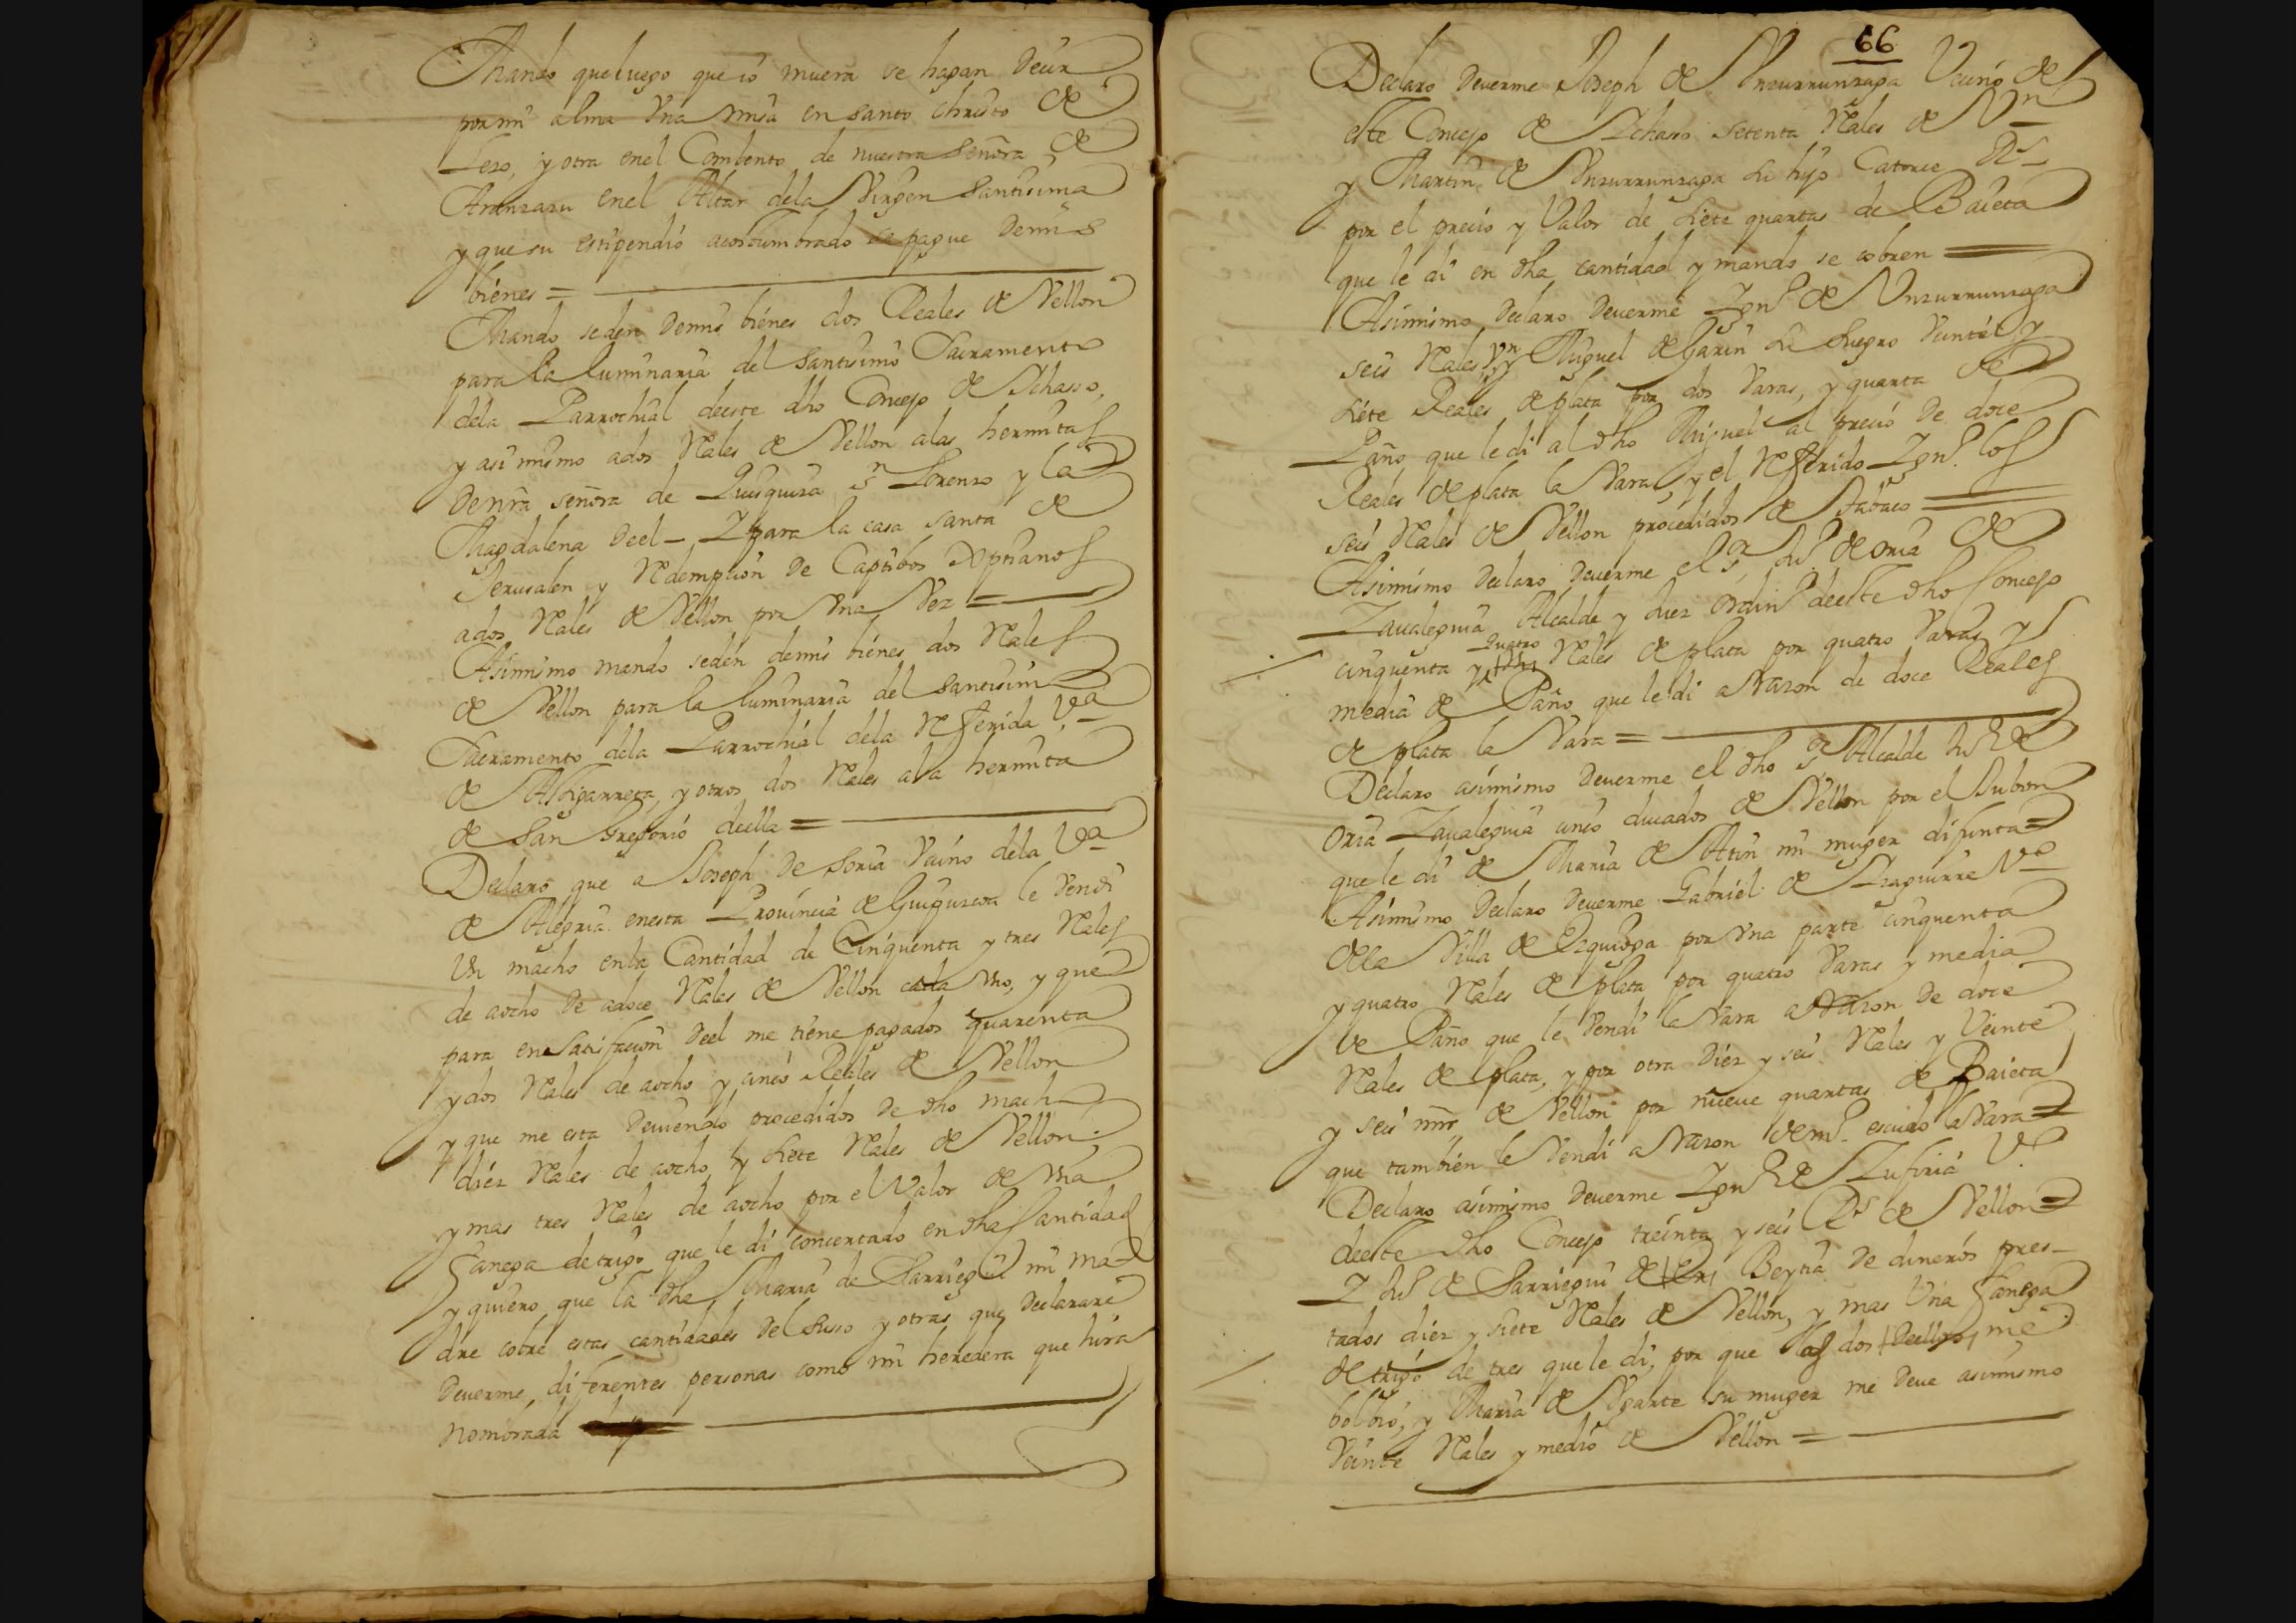 Mando que luego que io muera se hagan decir
por mi alma Vna misa en santo christo de
Lezo, y otra en el Combento de nuestra señora de
Aranzazu en el Altar de la Virgen Santisima
y que su estipendio acostumbrado se pague de mis
bienes =
Mando se den de mis bienes dos Reales de Vellon
para la luminaria del santisimo Sacramento
de la Parrochial de este dho Concejo de Ichasso,
y asi mismo a dos Rales de Vellon a las hermitas
de nra señora de Quisquiza sn Lorenzo y la
Magdalena de el - I para la casa santa de
Jerusalen y Redempcion de Captibos Xptianos
a dos Rales de Vellon por Vna Vez =
Asimismo mando se den de mis bienes dos Rales
de Vellon para la luminaria del santisimo
Sacramento de la Parrochial de la Referida Va
de Astigarreta, y otros dos Rales a la hermita
de san Gregorio de ella =
Declaro que a Joseph de Soria Vecino de la Va
de Alegria en esta Provincia de Guipuzcoa le Vendi
Vn macho en la Cantidad de Cinquenta y tres Rales
de aocho de a doce Rales de Vellon cada Vno, y que
para en satisfacion de el me tiene pagados quarenta
y dos Rales de aocho y cinco Reales de Vellon
y que me esta deuiendo procedidos de dho macho
diez Rales de aocho, y siete Rales de Vellon,
y mas tres Rales de aocho por el Valor de Vna
fanega de trigo que le di concertado en dha Cantidad
y quiero que la dha Maria de Sarriegui mi ma-
dre cobre estas cantidades del suso y otras que declarare
deuerme diferentes personas como mi heredera que hira
nombrada
66
Declaro deuerme Joseph de Vnzurrunzaga Vecino de
este Concejo de Ichasso setenta Rales de Vn
y Martin de Vnzurrunzaga su hijo Catorce Rs
por el precio y Valor de siete quartas de Baieta
que le di en dha cantidad y mando se cobren =
Asimismo declaro deuerme Ignº de Vnzurrunzaga
seis Rales Vn y Miguel de Garin su suegro Veinte y
siete Reales de plata por dos Varas, y quarta de
Paño que le di al dho Miguel al precio de doce
Reales de plata la Vara, y el Referido Ignº los
seis Rales de Vellon procedidos de Tabaco =
Asimismo declaro deuerme el sr Juº de oria de
Zaualeguia Alcalde y Juez Ordinº de este dho Concejo
quatro
cinquenta y Rales de plata por quatro Varas y
media de Paño que le di a Razon de doce Reales
de plata la Vara =
Declaro asimismo deuerme el dho sr Alcalde Juº de
Oria Zaualeguia cinco ducados de Vellon por el Jubon
que le di de Maria de Atin mi muger difunta
Asimismo declaro deuerme Gabriel de Izaguirre Vº
de la Villa de Ezquioga por Vna parte cinquenta
y quatro Rales de plata por quatro Varas y media
de Paño que le Vendi la Vara a Razon de doce
Rales de plata, y por otra diez y seis Rales y Veinte
y seis mrs de Vellon por nueve quartas de Baieta
que tambien le Vendi a Razon de mº escudo la Vara
Declaro asimismo deuerme Ignº de Zufiria Vº
de este dho Concejo treinta y seis Rs de Vellon
I Juº de Sarriegui de Beytia de dineros pres-
tados diez y siete Rales de Vellon, y mas Vna fanega
de trigo de tres que le di, por que las dos me
bolbio, y Maria de Vgarte su muger me deve asimismo
Veinte Rales y medio de Vellon =